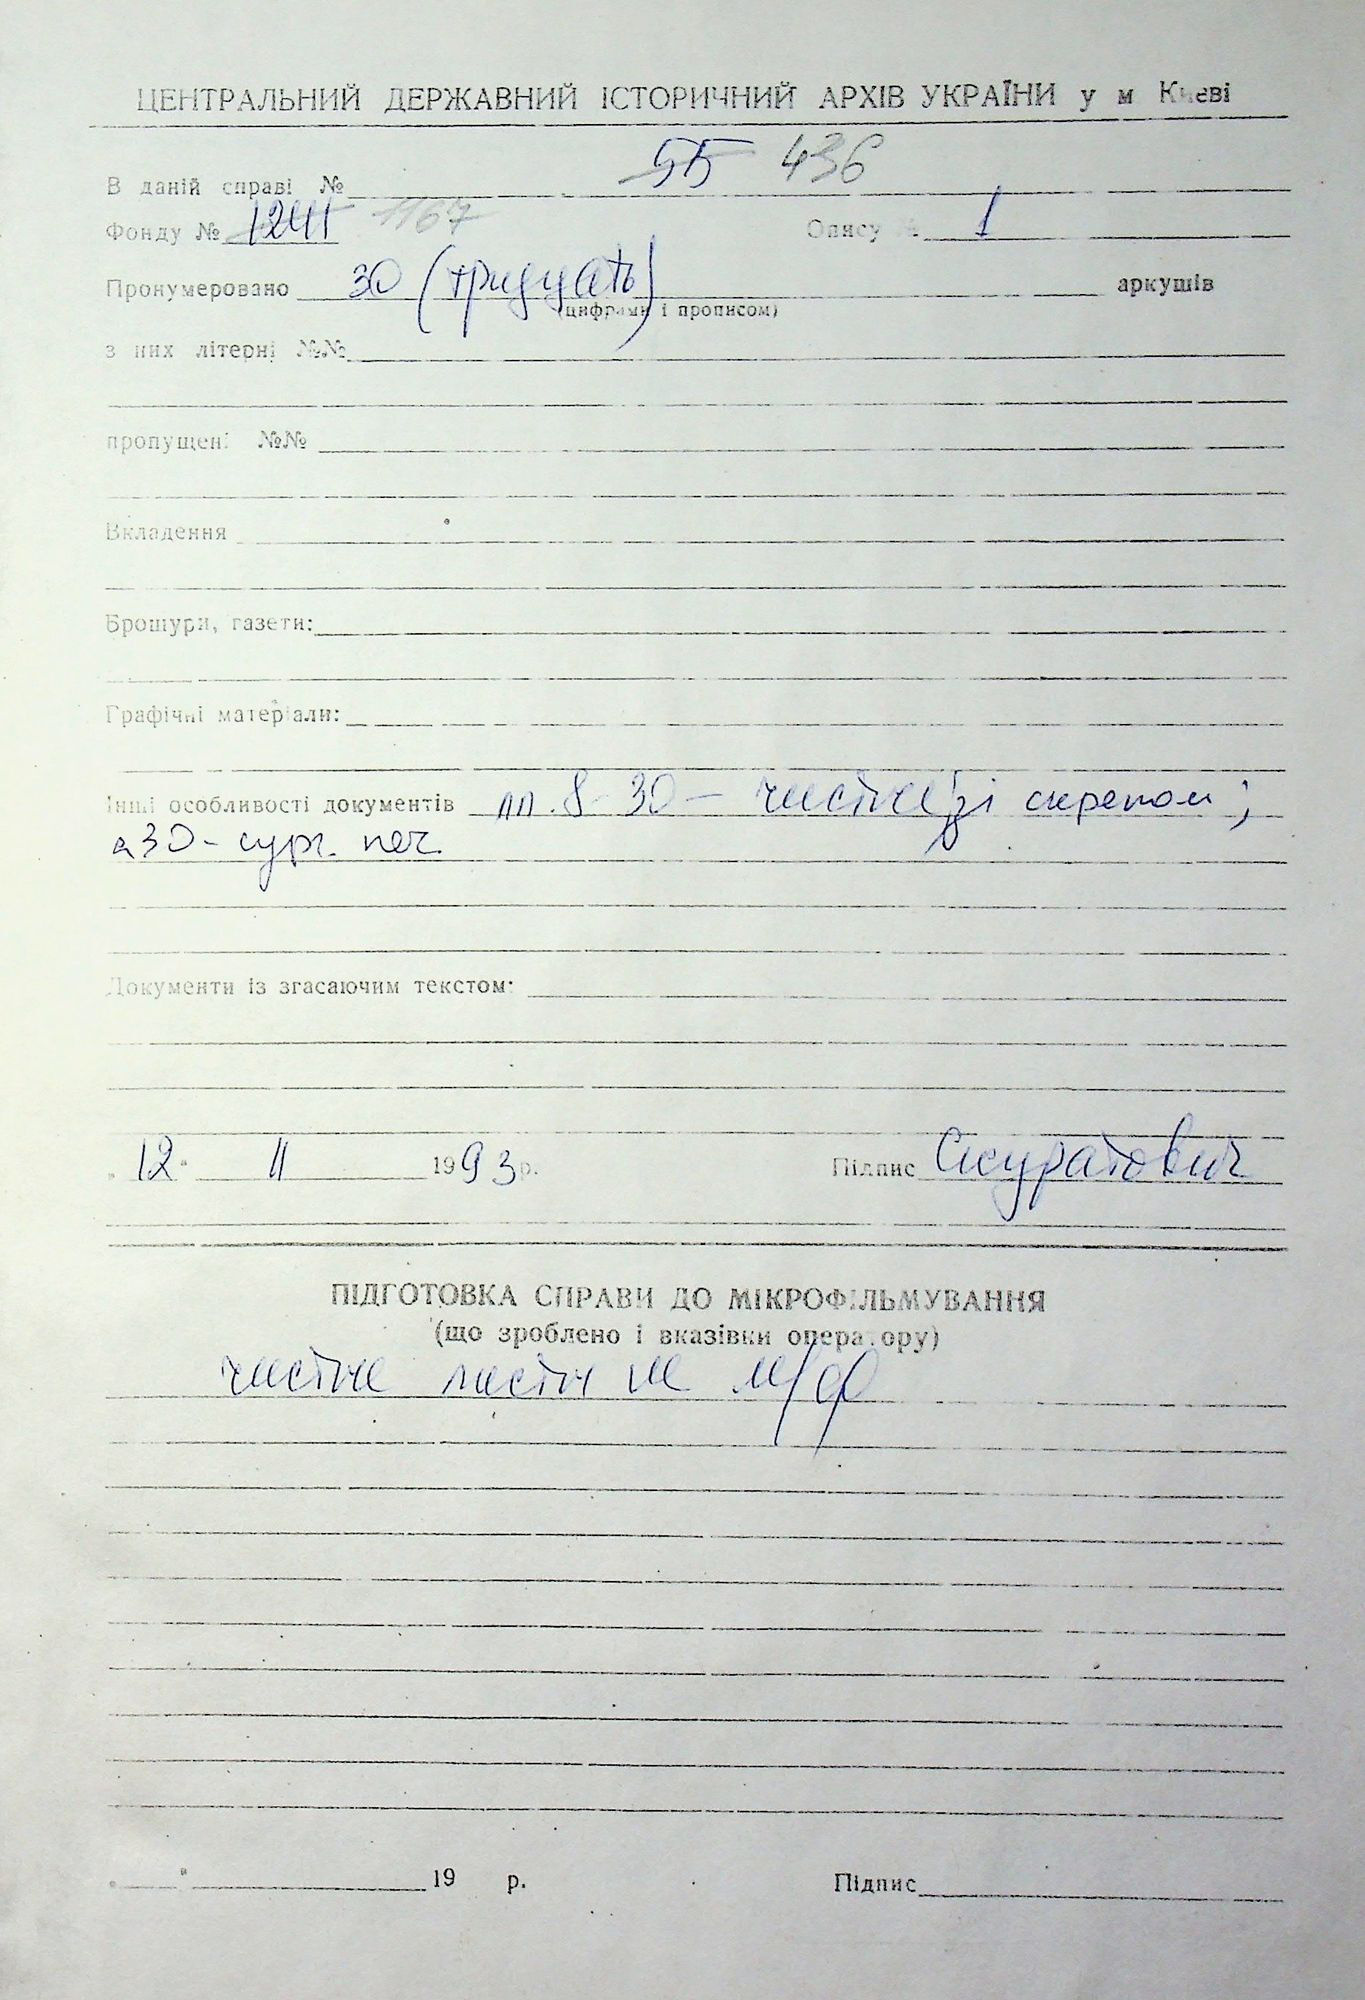 ЦЕНТРАЛЬНИЙ ДЕРЖАВНИЙ ІСТОРИЧНИЙ АРХІВ УКРАЇНИ у м Києві
В даній справі № 55 436
Фонду № 1241 1167 Опису № 1
Пронумеровано 30 (тридцать) аркушів
(цифрами і прописом)
з них літерні №№
пропущені №№
Вкладення
Брошури, газети:
Графічні матеріали:
Інші особливості документів лл. 8-30 - чистые, зі скрепою;
л30 - сург. печ.
Документи із згасаючим текстом:
"12" 11 1993 р. Підпис Скуратович
ПІДГОТОВКА СПРАВИ ДО МІКРОФІЛЬМУВАННЯ
(що зроблено і вказівки оператору)
чистые листы не м/ф
" " 19 р. Підпис